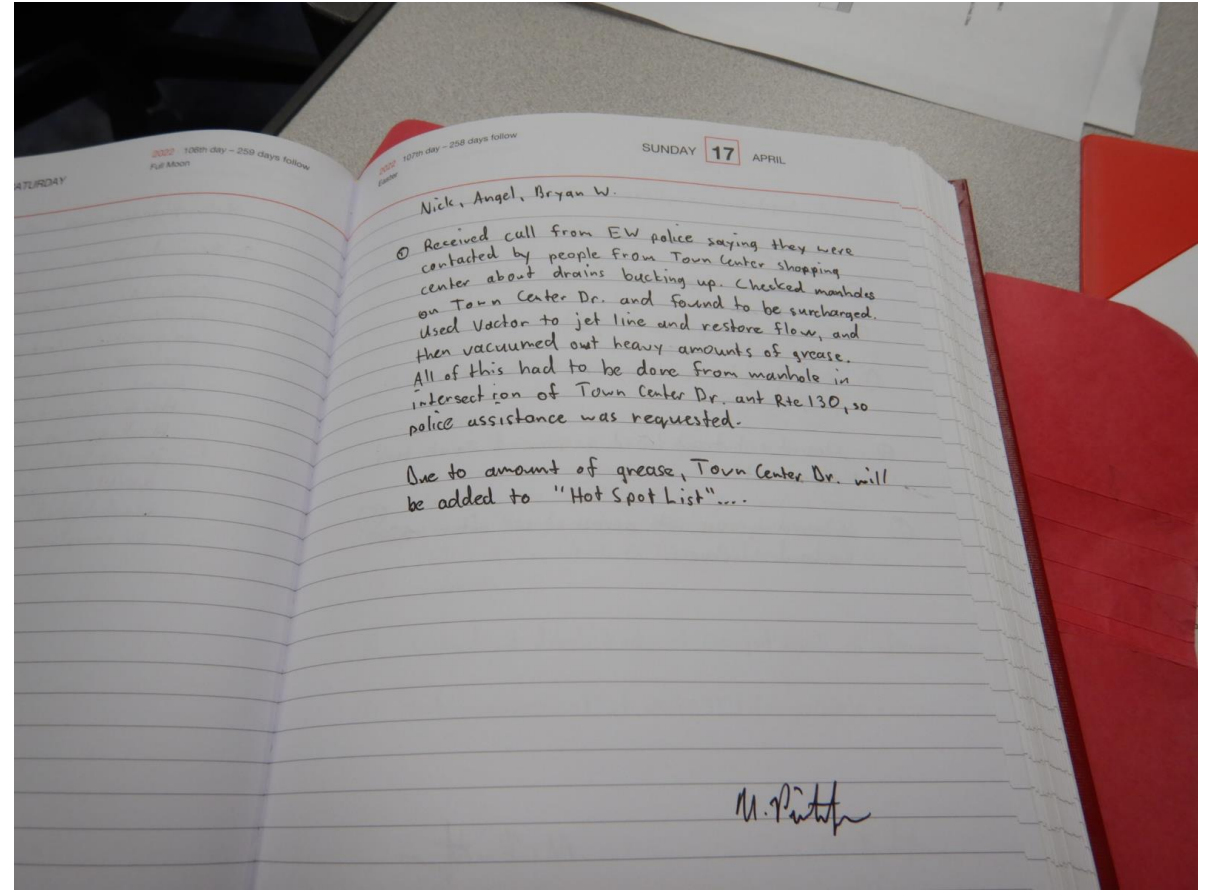 SATURDAY
2022 106th day – 259 days follow
Full Moon
2022 107th day – 258 days follow
Easter
SUNDAY 17 APRIL
Nick, Angel, Bryan W.
① Received call from EW police saying they were
contacted by people from Town Center shopping
center about drains backing up. Checked manholes
on Town Center Dr. and found to be surcharged.
Used Vactor to jet line and restore flow, and
then vacuumed out heavy amounts of grease.
All of this had to be done from manhole in
intersection of Town Center Dr. ant Rte 130, so
police assistance was requested.
Due to amount of grease, Town Center Dr. will
be added to "Hot Spot List"....